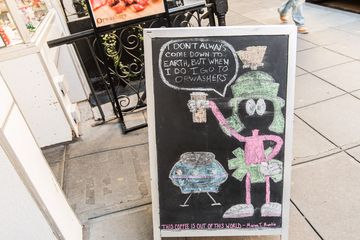 I DON'T ALWAYS
COME DOWN TO
EARTH, BUT WHEN
I DO I GO TO
ORWASHERS
THIS COFFEE IS OUT OF THIS WORLD - Marvin T. Martin